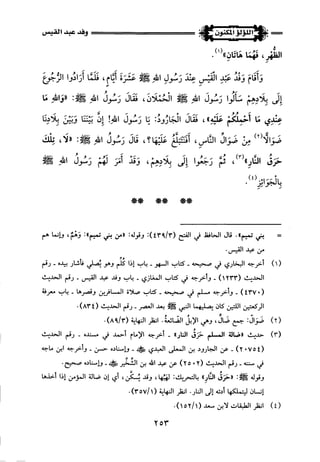 اللؤلؤ المكنون
وفد عبد القيس
الظُّهْرِ، فَهُمَا هَاتَانِ»(١).
وَأَقَامَ وَفْدُ عَبْدِ الْقَيْسِ عِنْدَ رَسُولِ اللهِ ﷺ عَشَرَةَ أَيَّامٍ، فَلَمَّا أَرَادُوا الرُّجُوعَ
إِلَى بِلَادِهِمْ سَأَلُوا رَسُولَ اللهِ ﷺ الْحُمْلَانَ، فَقَالَ رَسُولُ اللهِ ﷺ: «وَاللهِ مَا
عِنْدِي مَا أَحْمِلُكُمْ عَلَيْهِ»، فَقَالَ الْجَارُودُ: يَا رَسُولَ اللهِ! إِنَّ بَيْنَنَا وَبَيْنَ بِلَادِنَا
ضَوَالًّا(٢) مِنْ ضَوَالِّ النَّاسِ، أَفَنَتَبَلَّغُ عَلَيْهَا؟، قَالَ رَسُولُ اللهِ ﷺ: «لَا، تِلْكَ
حَرَقُ النَّارِ»(٣)، ثُمَّ رَجَعُوا إِلَى بِلَادِهِمْ، وَقَدْ أَمَرَ لَهُمْ رَسُولُ اللهِ ﷺ
بِالْجَوَائِزِ(٤).
* * *
= بني تميم». قال الحافظ في الفتح (٤٣٩/٣): وقوله: «من بني تميم»: وَهْمٌ، وإنما هم
من عبد القيس.
(١) أخرجه البخاري في صحيحه - كتاب السهو - باب إذا كُلِّم وهو يُصلي فأشار بيده - رقم
الحديث (١٢٣٣) - وأخرجه في كتاب المغازي - باب وفد عبد القيس - رقم الحديث
(٤٣٧٠) - وأخرجه مسلم في صحيحه - كتاب صلاة المسافرين وقصرها - باب معرفة
الركعتين اللتين كان يصليهما النبي ﷺ بعد العصر - رقم الحديث (٨٣٤).
(٢) ضَوَالّ: جمع ضَالّ، وهي الإبل الضائعة. انظر النهاية (٨٩/٣).
(٣) حديث «ضالة المسلم حَرَقُ النار» - أخرجه الإمام أحمد في مسنده - رقم الحديث
(٢٠٧٥٤) - عن الجارود بن المعلى العبدي ﷺ - وإسناده حسن - وأخرجه ابن ماجه
في سننه - رقم الحديث (٢٥٠٢) عن عبد الله بن الشِّخِّير ﷺ - وإسناده صحيح.
وقوله ﷺ: «حَرَقُ النَّار» بالتحريك: لهبُها، وقد يُسكَّن، أي إن ضالة المؤمن إذا أخذها
إنسان ليتملكها أدته إلى النار. انظر النهاية (٣٥٧/١).
(٤) انظر الطبقات لابن سعد (١٥٢/١).
٢٥٣